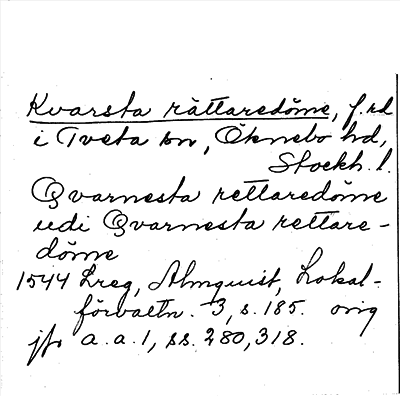 Kvarsta rättaredöme, f.rd
i Tveta sn, Öknebo hd,
Stockh. l.
Qvarnesta rettaredöme
udi Qvarnesta rettare-
döme
1544 Lreg, Almquist, Lokal-
förvaltn. 3, s. 185. orig
jfr a.a. 1, ss. 280, 318.